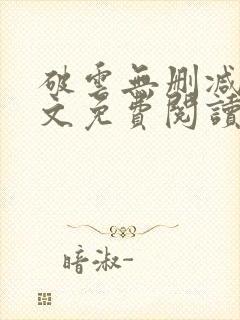 破雲無刪減
文免費閱讀
暗淑-